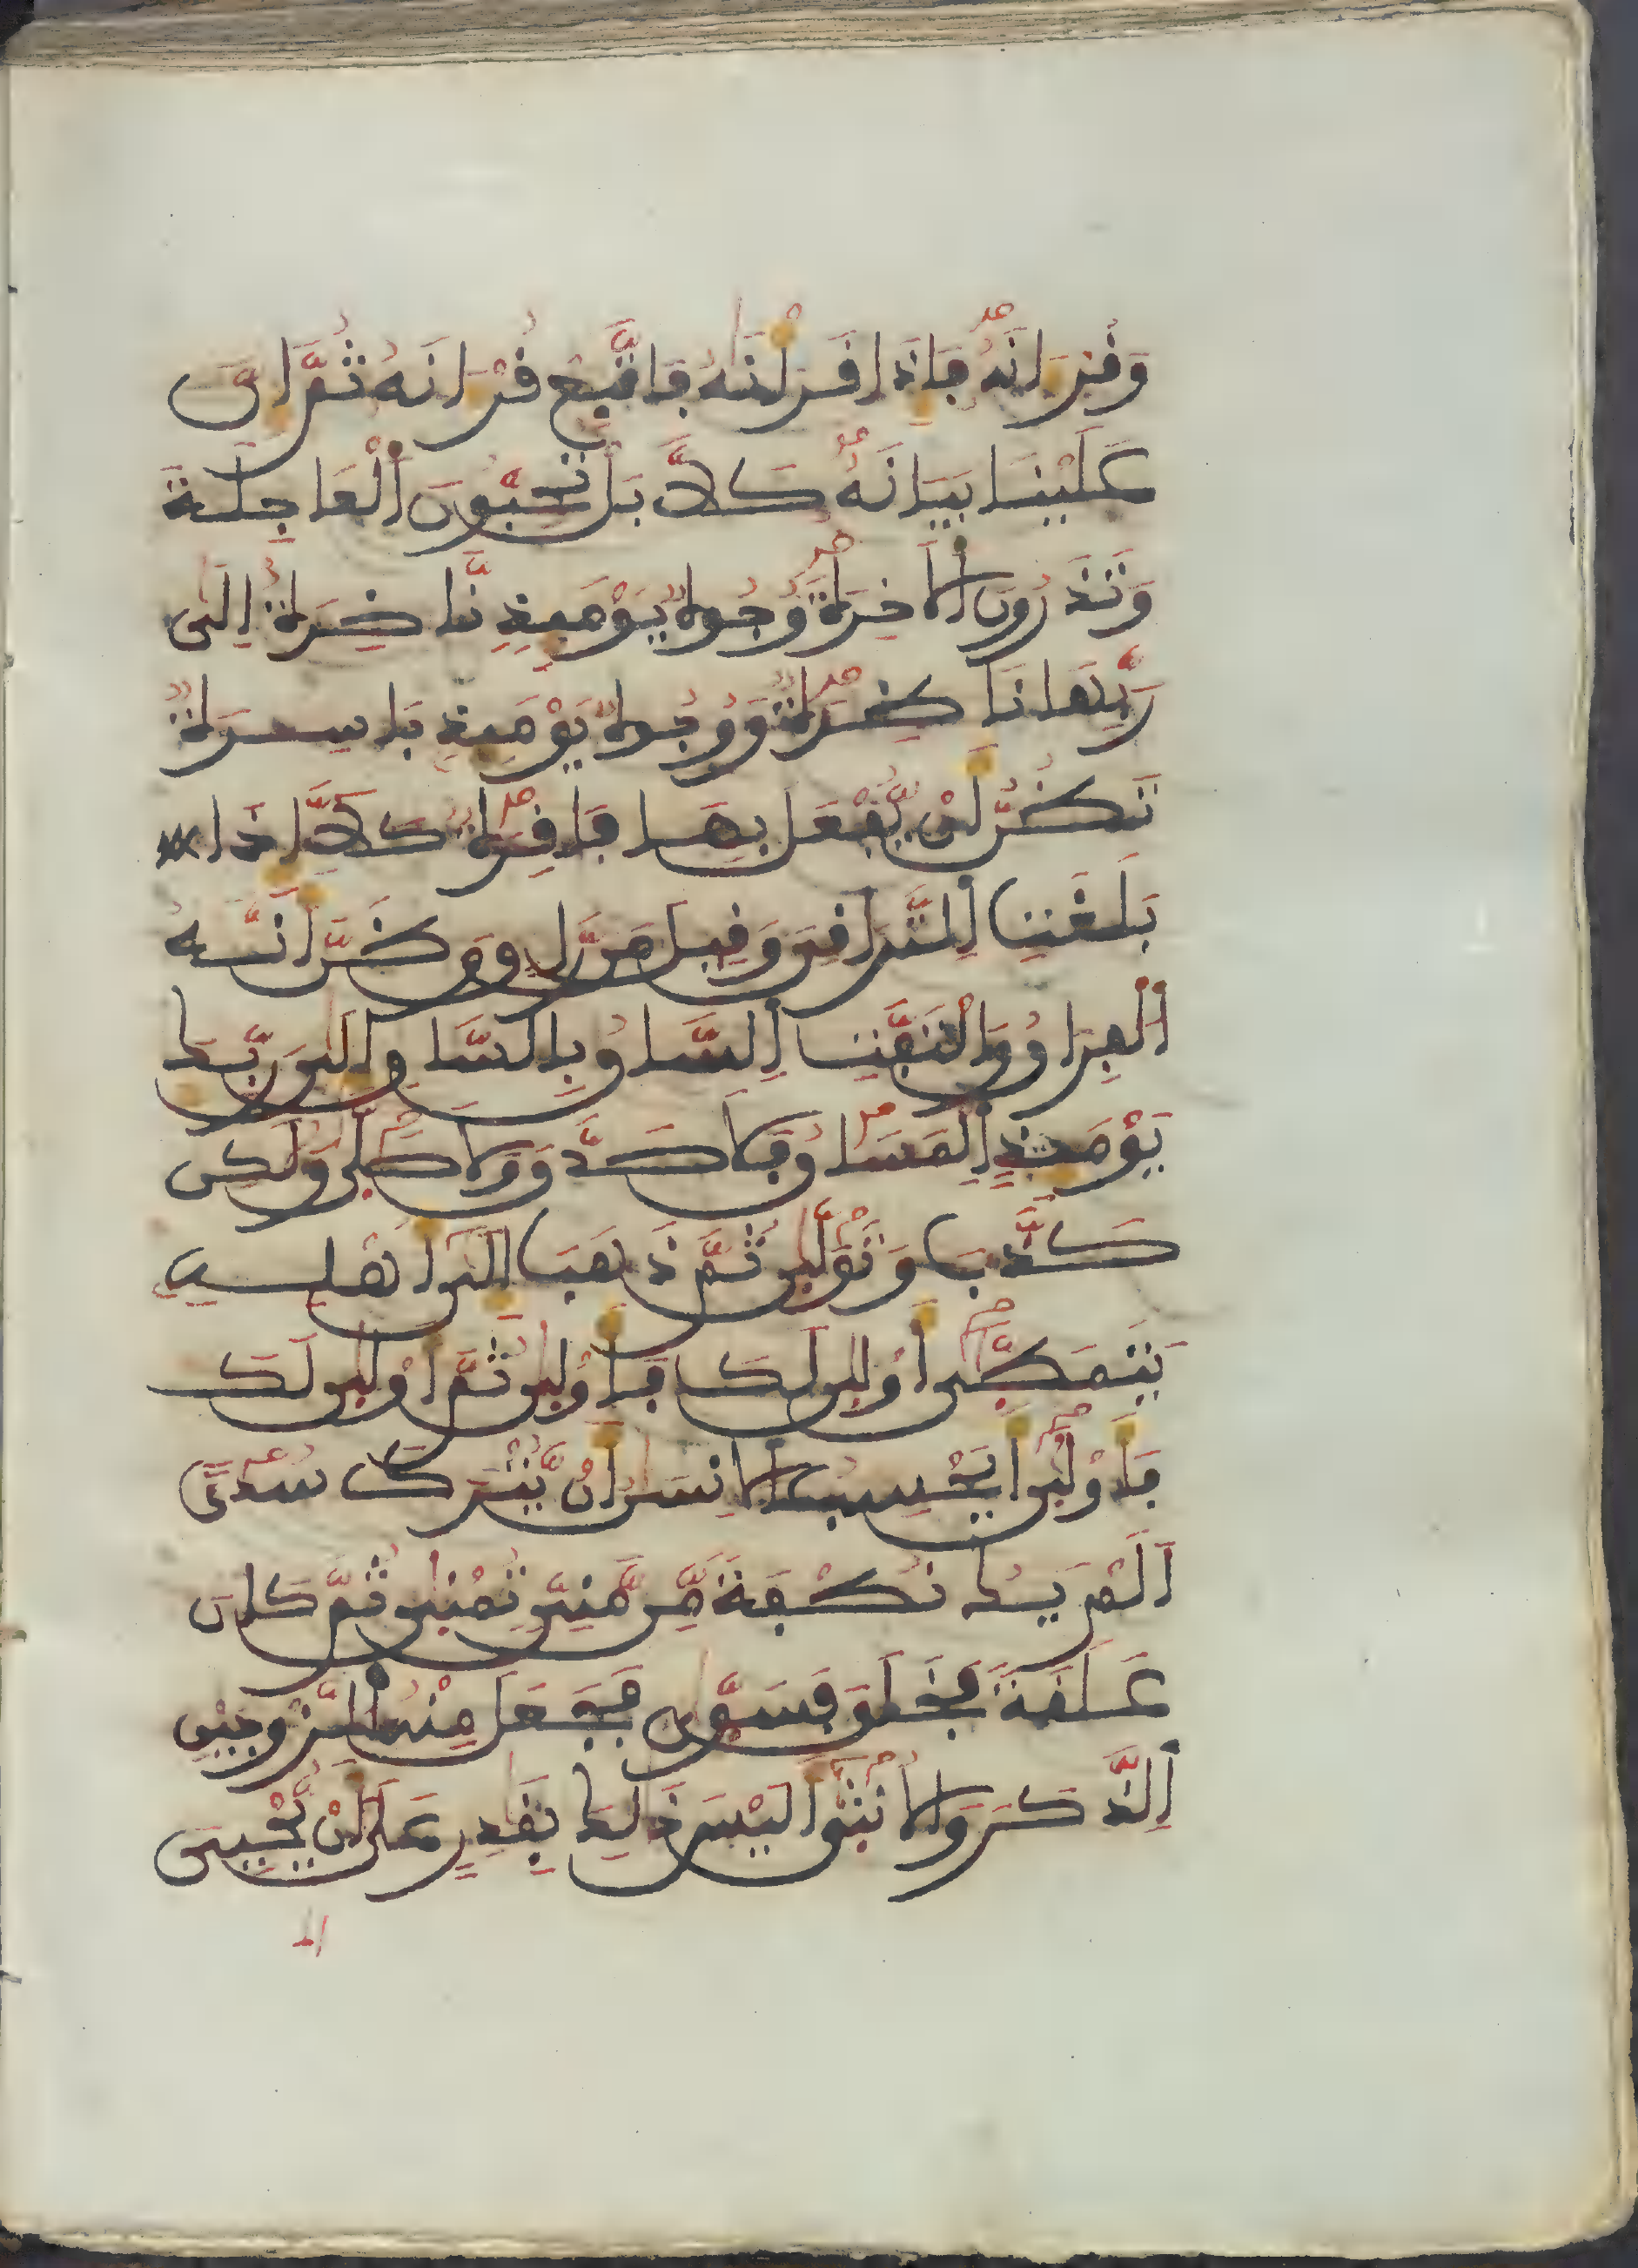 وَقُرْءَانَهُ فَإِذَا قَرَأْنَٰهُ فَاتَّبِعْ قُرْءَانَهُ ثُمَّ إِنَّ
عَلَيْنَا بَيَانَهُ كَلَّا بَلْ تُحِبُّونَ ٱلْعَاجِلَةَ
وَتَذَرُونَ ٱلْأَخِرَةَ وُجُوهٌ يَوْمَئِذٍ نَّاضِرَةٌ إِلَىٰ
رَبِّهَا نَاظِرَةٌ وَوُجُوهٌ يَوْمَئِذٍ بَاسِرَةٌ
تَظُنُّ أَنْ يُّفْعَلَ بِهَا فَاقِرَةٌ كَلَّا إِذَا
بَلَغَتِ ٱلتَّرَاقِيَ وَقِيلَ مَن رَّاقٍ وَظَنَّ أَنَّهُ
ٱلْفِرَاقُ وَٱلْتَفَّتِ ٱلسَّاقُ بِٱلسَّاقِ إِلَىٰ رَبِّكَ
يَوْمَئِذٍ ٱلْمَسَاقُ فَلَا صَدَّقَ وَلَا صَلَّىٰ وَلَٰكِن
كَذَّبَ وَتَوَلَّىٰ ثُمَّ ذَهَبَ إِلَىٰ أَهْلِهِ
يَتَمَطَّىٰ أَوْلَىٰ لَكَ فَأَوْلَىٰ ثُمَّ أَوْلَىٰ لَكَ
فَأَوْلَىٰ أَيَحْسِبُ ٱلْإِنسَٰنُ أَنْ يُّتْرَكَ سُدًى
أَلَمْ يَكُ نُطْفَةً مِّن مَّنِيٍّ تُمْنَىٰ ثُمَّ كَانَ
عَلَقَةً فَخَلَقَ فَسَوَّىٰ فَجَعَلَ مِنْهُ ٱلزَّوْجَيْنِ
ٱلذَّكَرَ وَٱلْأُنثَىٰ أَلَيْسَ ذَٰلِكَ بِقَٰدِرٍ عَلَىٰ أَنْ يُّحْيِيَ